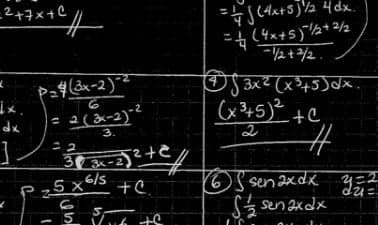 2 + 7x + C
= 1/4 ∫ (4x+5)^1/2 4dx.
= 1/4 (4x+5)^-1/2+2/2 / -1/2+2/2.
= 4(3x-2)^-2 / 6
= 2(3x-2)^-2 / 3.
= 2 / 3(3x-2)^2 + C
dx
④ ∫ 3x² (x³+5) dx.
(x³+5)² / 2 + C
5x^6/5 / 6 + C.
= 5
+ C
⑥ ∫ sen 2x dx
∫ 1/2 sen 2x dx